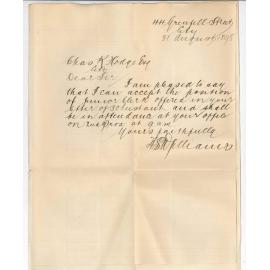 44 Grenfell Street,
City
31 August 1898
Chas K Hodge Esq
Dear Sir
I am pleased to say
that I can accept the position
of junior clerk offered in your
letter of 30 instant and shall
be in attendance at your office
on at 9 am
Yours faithfully